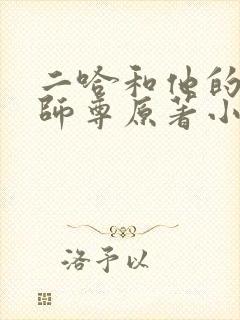 二哈和他的
師尊原著小
洛予以